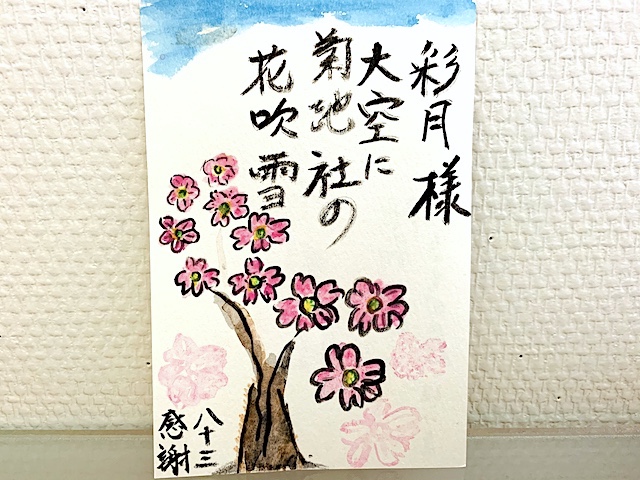 彩月様
大空に
菊池社の
花吹雪
八十三
感謝